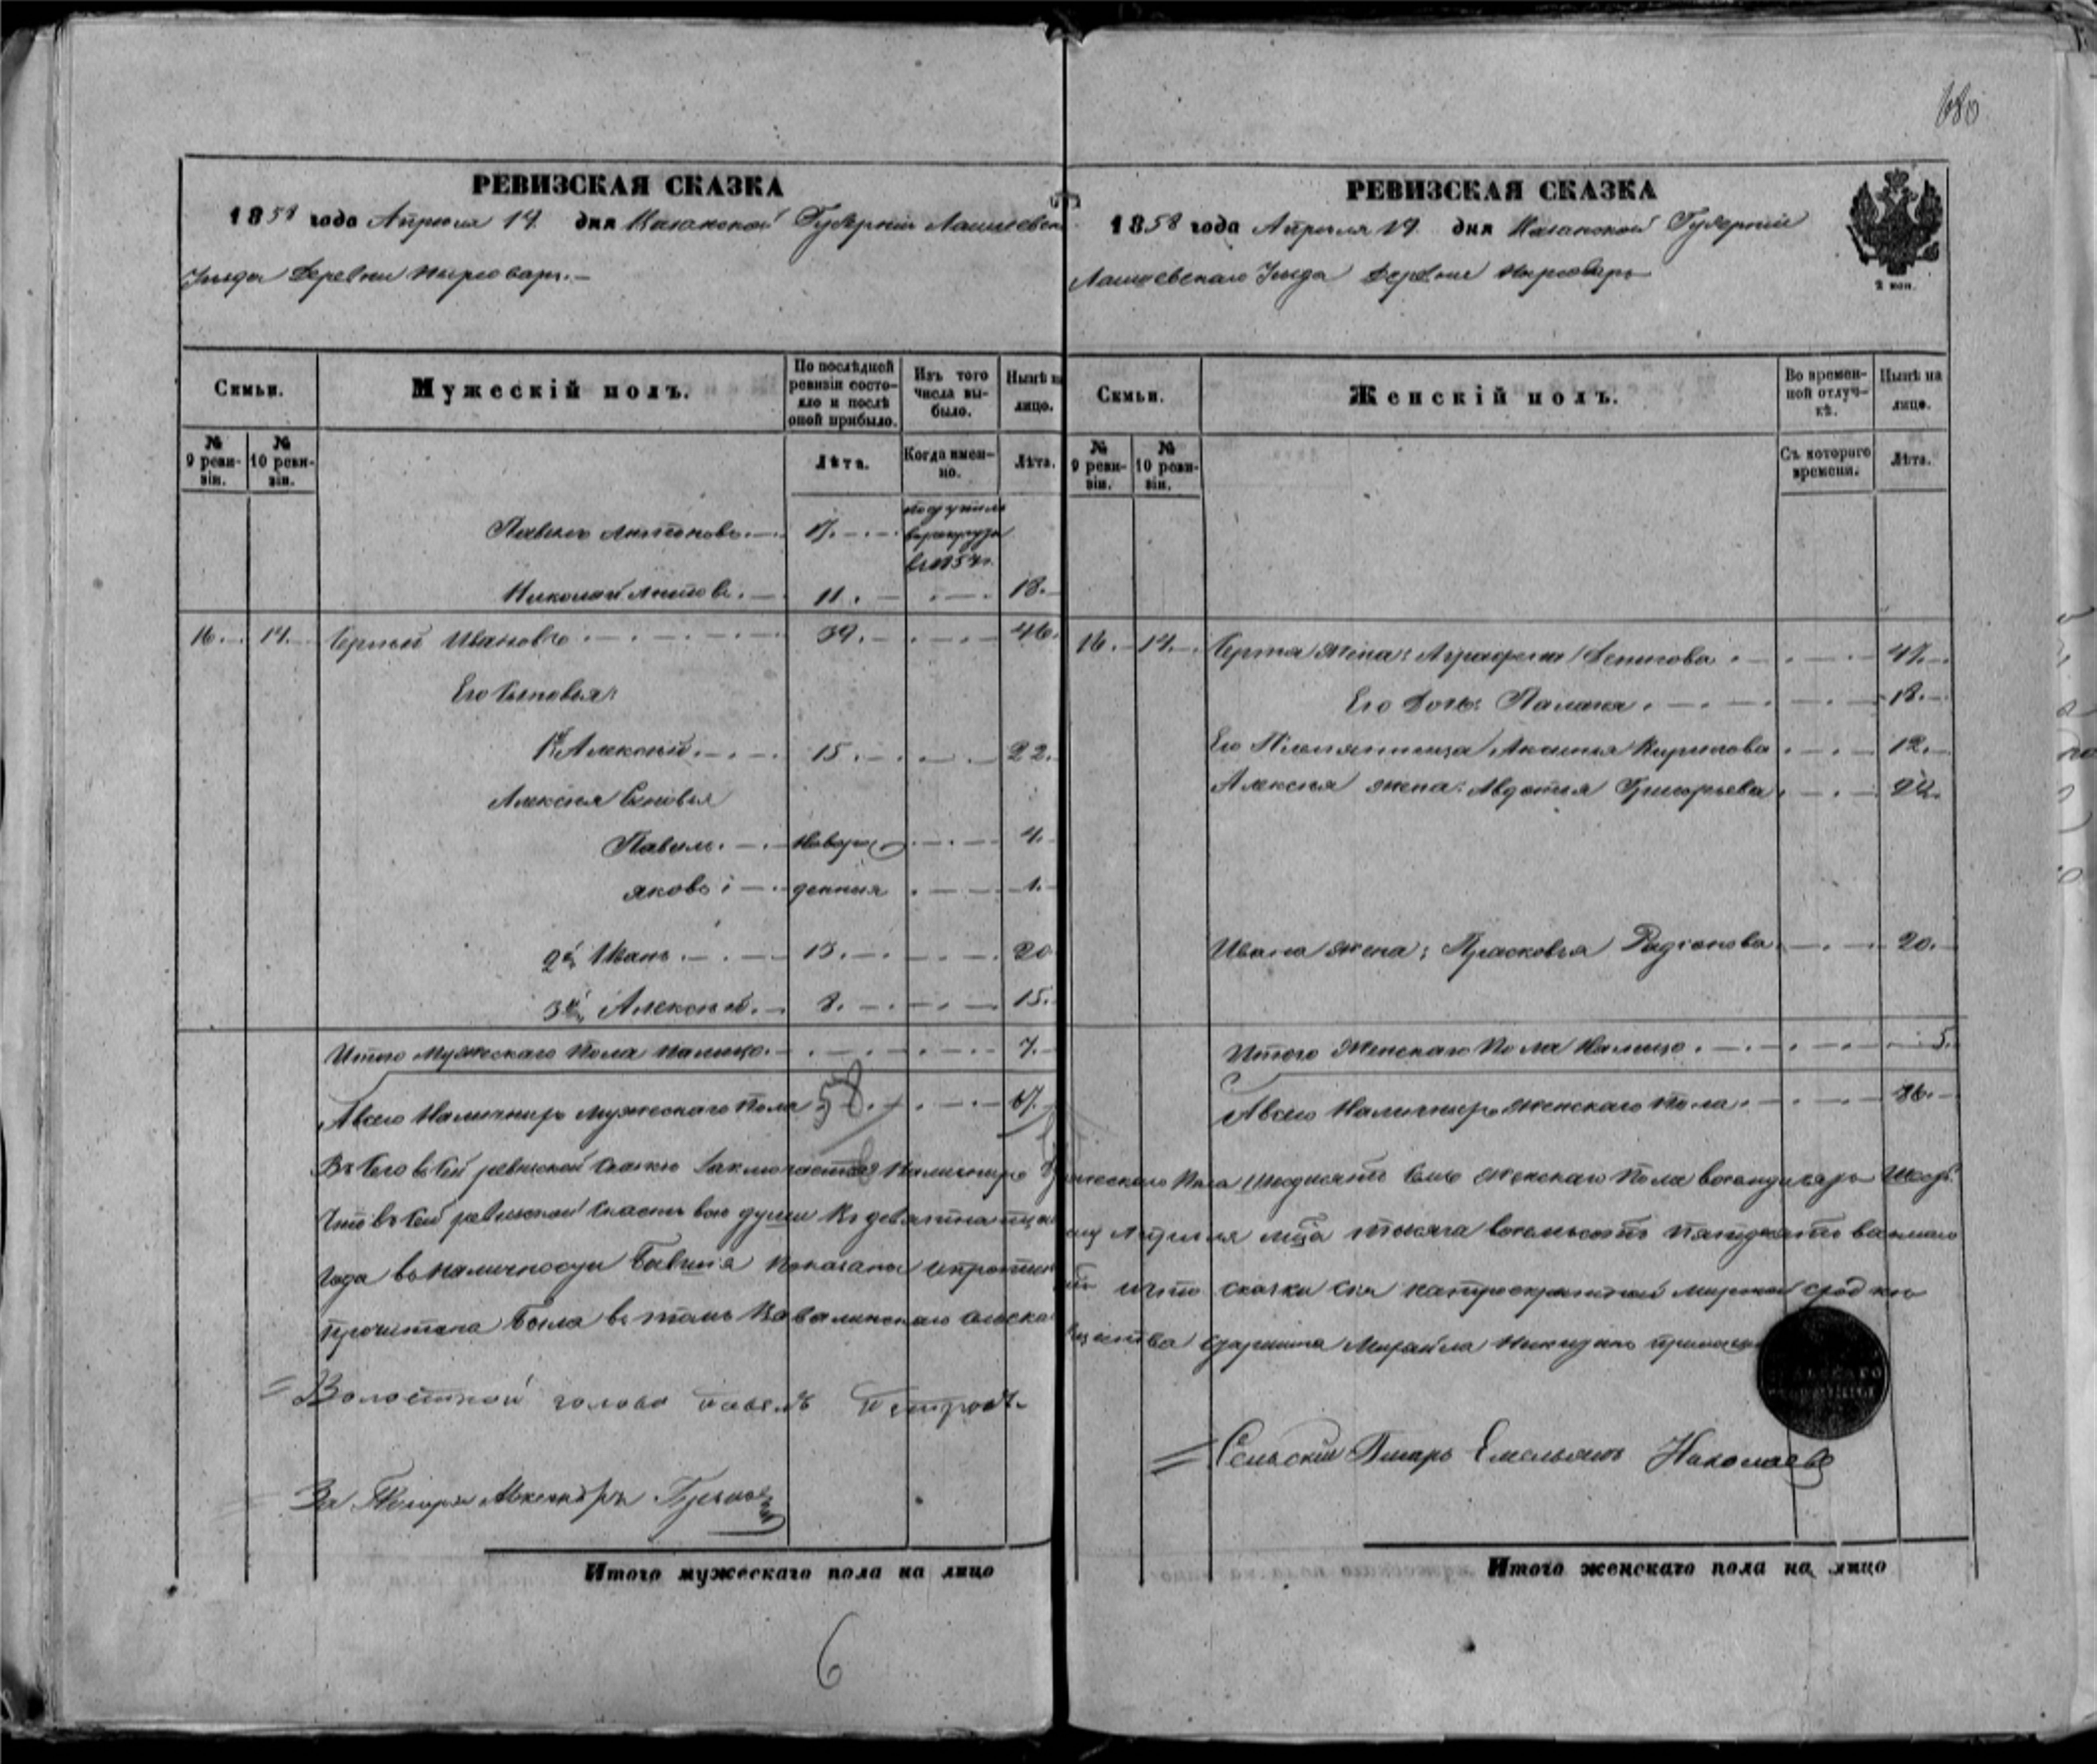 680
РЕВИЗСКАЯ СКАЗКА
1858 года Апреля 19 дня Казанской Губернiи Лаишевск
Уезда Деревни
Семьи.
Мужескій полъ.
По послѣдней ревизіи состояло и послѣ оной прибыло.
Изъ того числа выбыло.
Нынѣ на лицо.
№ 9 ревизіи.
№ 10 ревизіи.
Лѣта.
Когда именно.
Лѣта.
Павелъ Антоновъ 17.
в 1854
Николай Антоновъ 11. 18.
16. 14. Сергей Ивановъ 39. 46.
Его Сыновья:
1й Алексей 15. 22.
Алексея Сыновья
Павелъ Новорож 4.
Яковъ денныя 1.
2й Иванъ 13. 20
3й Алексей 8. 15.
Итого Мужескаго Пола налицо. 7.
Авсего Наличныхъ Мужескаго Пола 58 67.
РЕВИЗСКАЯ СКАЗКА
1858 года Апреля 19 дня Казанской Губернiи
Лаишевскаго Уезда Деревни
2 коп.
Семьи.
Женскій полъ.
Во временной отлучкѣ.
Нынѣ на лицо.
№ 9 ревизіи.
№ 10 ревизіи.
Съ котораго времени.
Лѣта.
16. 14. Сергея Жена: Аграфена Денисова 47.
Его Дочь: Палагея 18.
Его Племянница Аксинья Кирилова 12.
Алексея жена: Авдотья Григорьева 22.
Ивана Жена: Прасковья Радiонова 20.
Итого Женскаго Пола Налицо 5.
Авсего Наличныхъ Женскаго Пола 86.
Въ сего в сей ревиской сказке Заключается Наличныхъ Мужескаго Пола Шесдесятъ Семь Женскаго Пола восемдесятъ Шесть
Что въ сей ревиской сказки все души Къ девятнацатому Апреля мца тысяча восемьсотъ пятдесятъ васмаго
Года въ наличности бывшiя показаны и что сказка сiя мирской сходкѣ
прочитана была в томъ старшина Михайла Никитинъ
Волостной голова Павелъ Петровъ
За Писаря Александръ
Сельскiй Писарь Емельянъ Николаевъ
Итого мужескаго пола на лицо
Итого женскаго пола на лицо
6